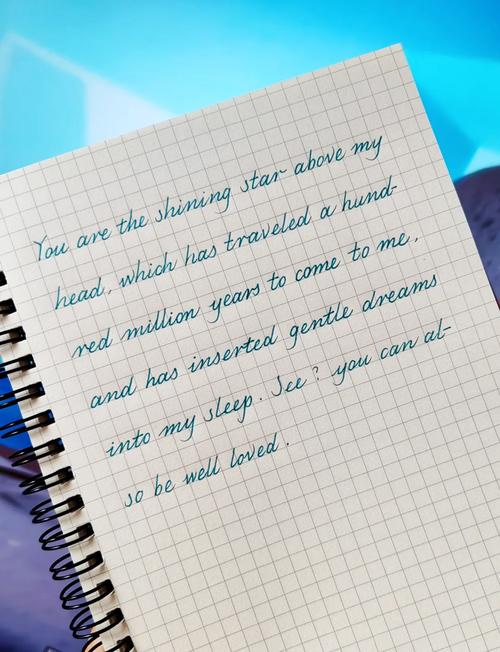 You are the shining star above my
head, which has traveled a hund-
red million years to come to me,
and has inserted gentle dreams
into my sleep. See? you can al-
so be well loved.